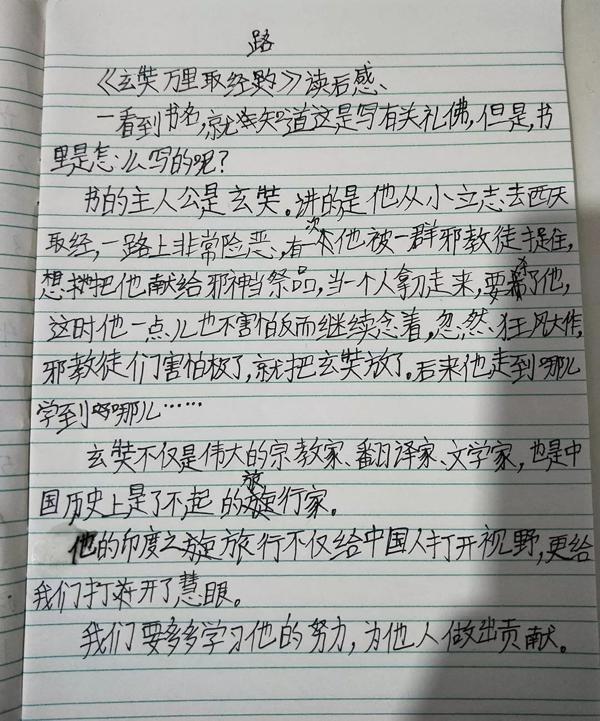 路
《玄奘万里取经路》读后感、
一看到书名,就知道这是写有关礼佛,但是,书
里是怎么写的呢?
书的主人公是玄奘。讲的是他从小立志去西天
取经,一路上非常险恶,有一次他被一群邪教徒捉住,
想把他献给邪神当祭品,当一个人拿刀走来,要杀了他,
这时他一点儿也不害怕反而继续念着,忽然狂风大作,
邪教徒们害怕极了,就把玄奘放了。后来他走到哪儿
学到哪儿……
玄奘不仅是伟大的宗教家、翻译家、文学家,也是中
国历史上是了不起的旅行家。
他的印度之旅行不仅给中国人打开视野,更给
我们打开了慧眼。
我们要多多学习他的努力,为他人做出贡献。